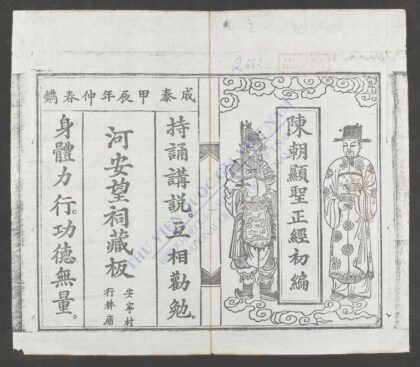 陳朝顯聖正經初編
成泰甲辰年仲春鐫
持誦講說。互相勸勉。
河安望祠藏板
安寧村
行林廟
身體力行。功德無量。
THƯ VIỆN QUỐC GIA VIỆT NAM